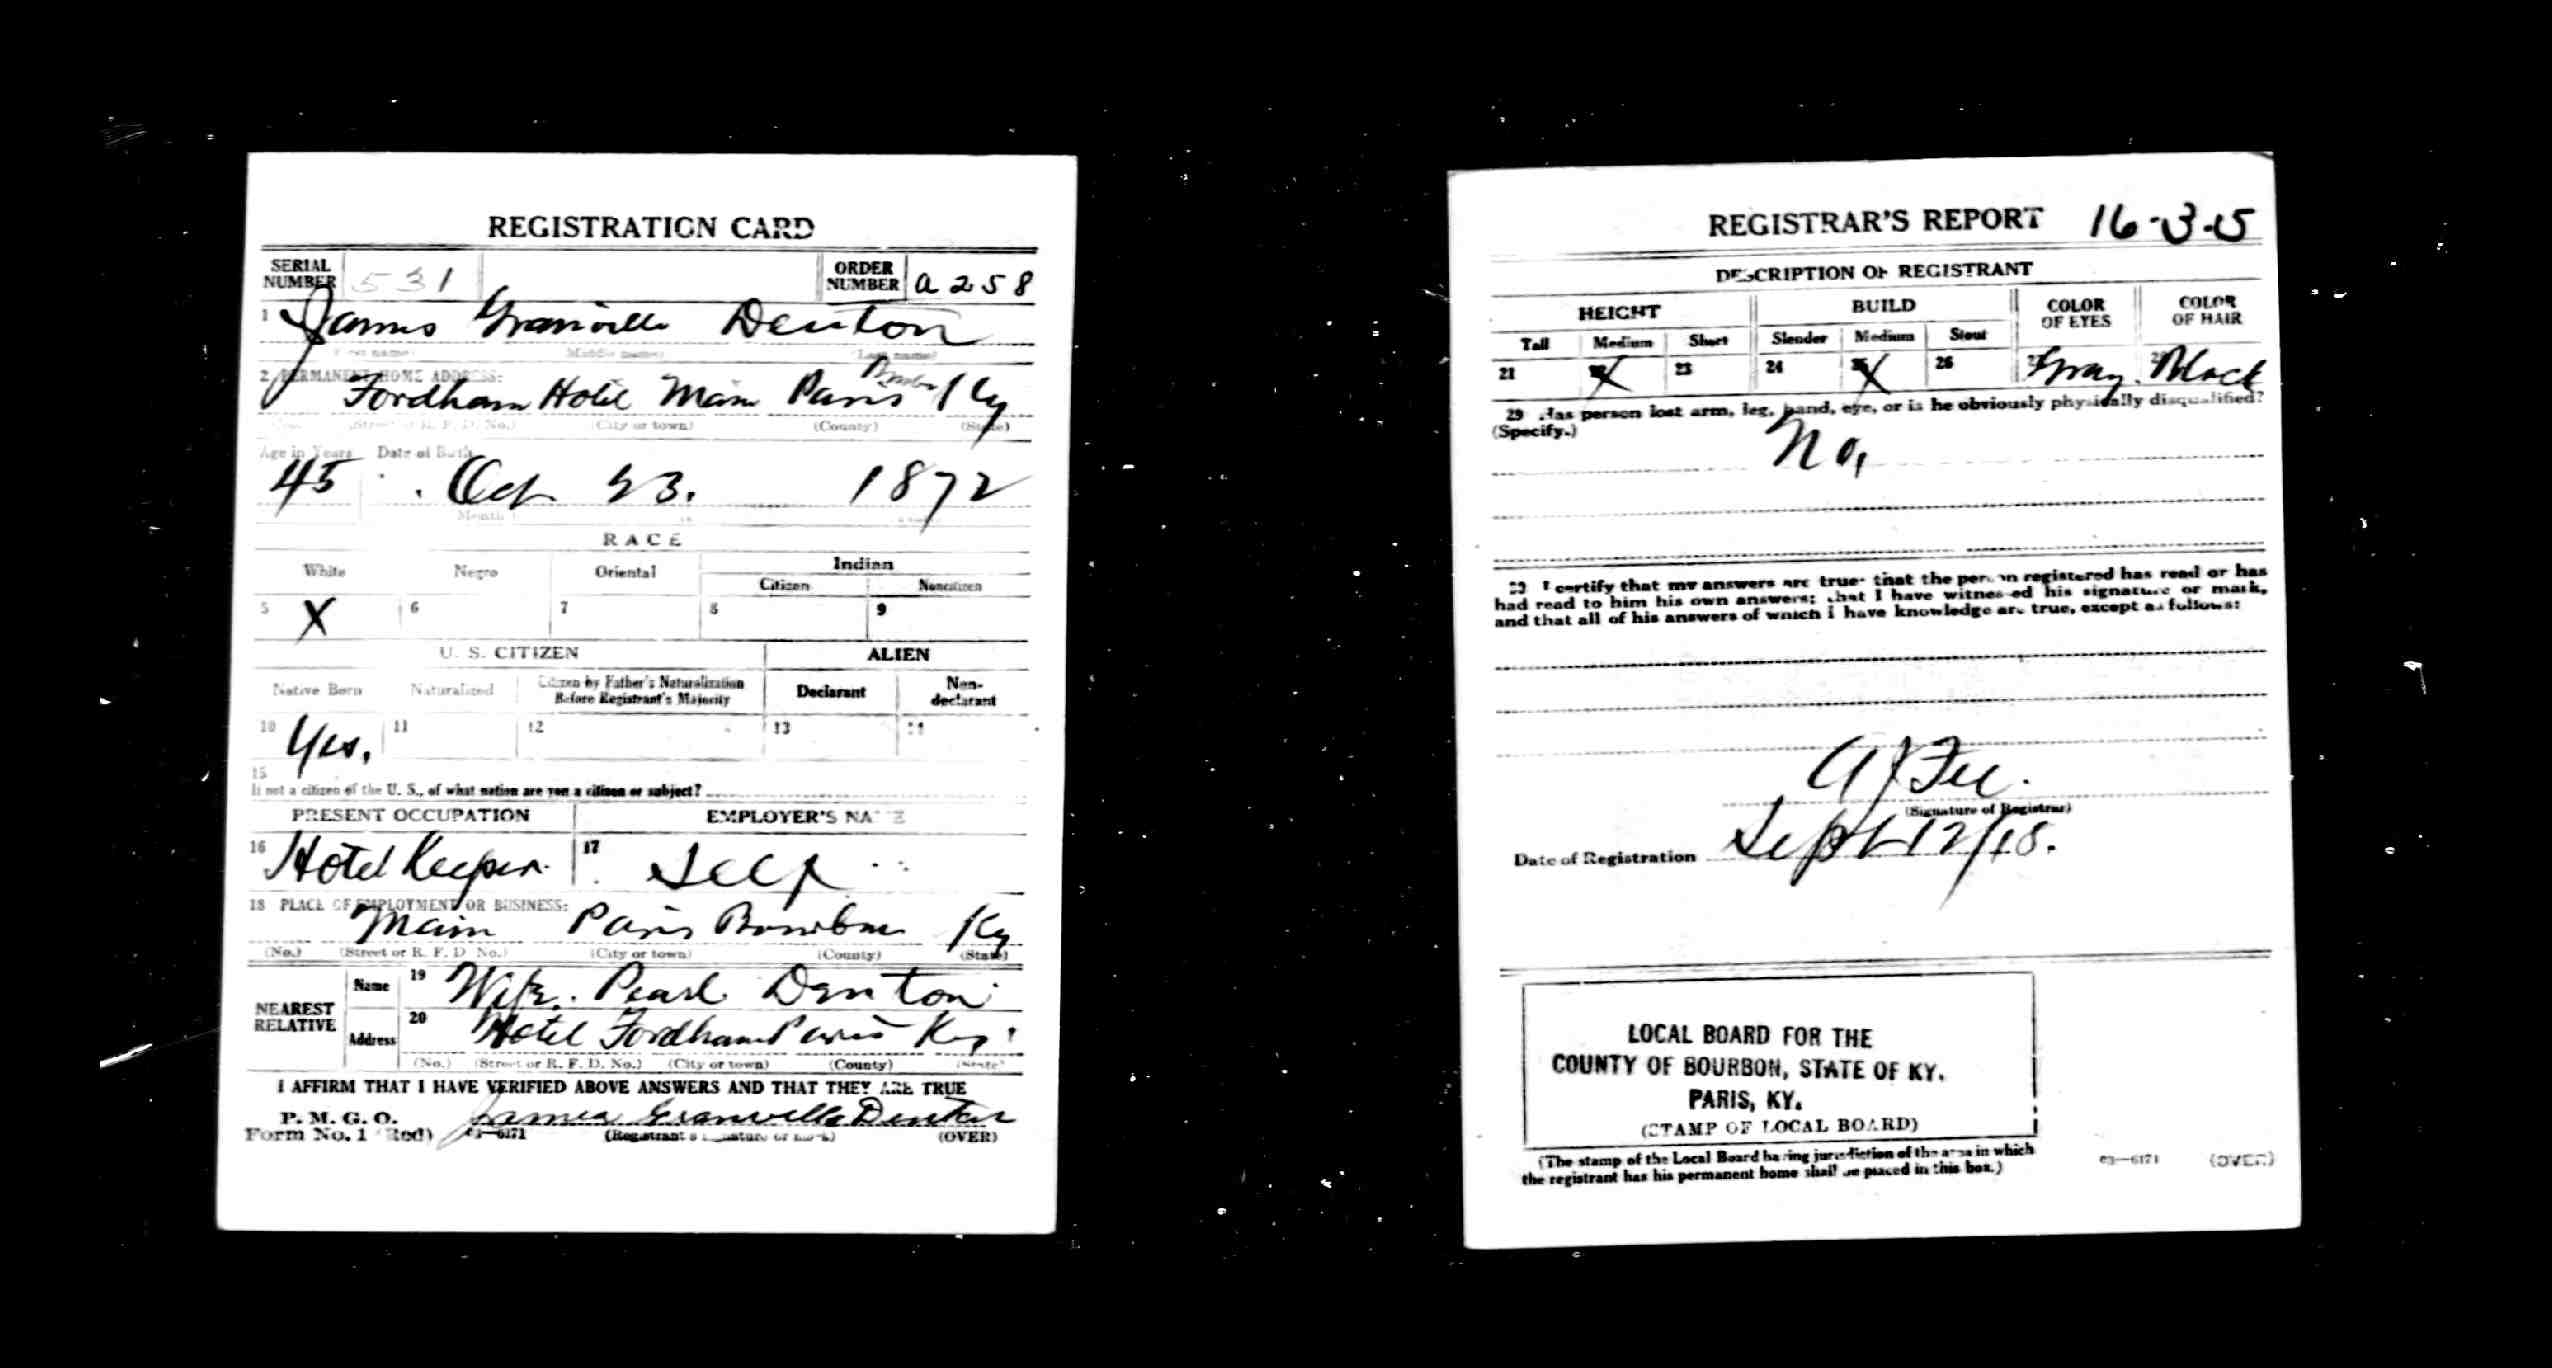 REGISTRATION CARD
SERIAL NUMBER 531 ORDER NUMBER a 258
1 James Granville Denton
(First name) (Middle name) (Last name)
2 PERMANENT HOME ADDRESS:
Fordham Hotel Main Paris Bourbon Ky
(No.) (Street or R. F. D. No.) (City or town) (County) (State)
Age in Years Date of Birth
45 Oct 23. 1872
Month
RACE
White Negro Oriental Indian
Citizen Noncitizen
5 X 6 7 8 9
U. S. CITIZEN ALIEN
Native Born Naturalized Citizen by Father's Naturalization Before Registrant's Majority Declarant Non-declarant
10 Yes. 11 12 13 14
15
If not a citizen of the U. S., of what nation are you a citizen or subject?
PRESENT OCCUPATION EMPLOYER'S NAME
16 Hotel Keeper 17 Self
18 PLACE OF EMPLOYMENT OR BUSINESS:
Main Paris Bourbon Ky
(No.) (Street or R. F. D. No.) (City or town) (County) (State)
NEAREST RELATIVE Name 19 Wife. Pearl Denton
Address 20 Hotel Fordham Paris Ky
(No.) (Street or R. F. D. No.) (City or town) (County) (State)
I AFFIRM THAT I HAVE VERIFIED ABOVE ANSWERS AND THAT THEY ARE TRUE
P. M. G. O. James Granville Denton
Form No. 1 (Red) 03—6171 (Registrant's signature or mark) (OVER)
REGISTRAR'S REPORT 16-3-15
DESCRIPTION OF REGISTRANT
HEIGHT BUILD COLOR OF EYES COLOR OF HAIR
Tall Medium Short Slender Medium Stout
21 22 X 23 24 25 X 26 27 Gray 28 Black
29 Has person lost arm, leg, hand, eye, or is he obviously physically disqualified?
(Specify.)
No,
30 I certify that my answers are true; that the person registered has read or has
had read to him his own answers; that I have witnessed his signature or mark,
and that all of his answers of which I have knowledge are true, except as follows:
A J Fee.
(Signature of Registrar)
Date of Registration Sept 12/18.
LOCAL BOARD FOR THE
COUNTY OF BOURBON, STATE OF KY.
PARIS, KY.
(STAMP OF LOCAL BOARD)
(The stamp of the Local Board having jurisdiction of the area in which
the registrant has his permanent home shall be placed in this box.)
03—6171 (OVER)